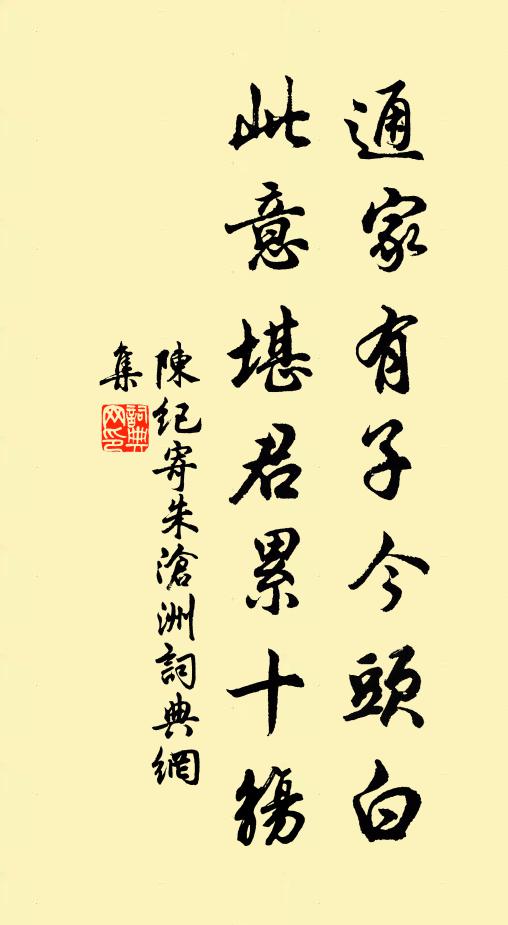 通家有子今頭白
此意堪君累十觴
陳紀寄朱滄洲詞典網
集
詞典
网印